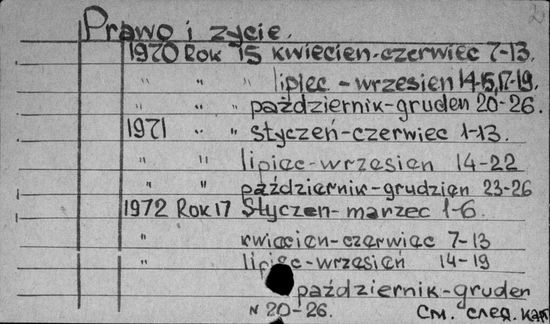 Prawo i zycie.
1970 Rok 15 kwiecien-czerwiec 7-13.
" " " lipiec - wrzesien 14-15,17-19.
" " " październik-gruden 20-26.
1971 " " styczeń-czerwiec 1-13.
" " lipiec-wrzesien 14-22
" " październik-grudzien 23-26
1972 Rok 17 Styczen-marzec 1-6.
" kwiecien-czerwiec 7-13
" lipiec-wrzesień 14-19
październik-gruden
N 20-26. См. след. кар